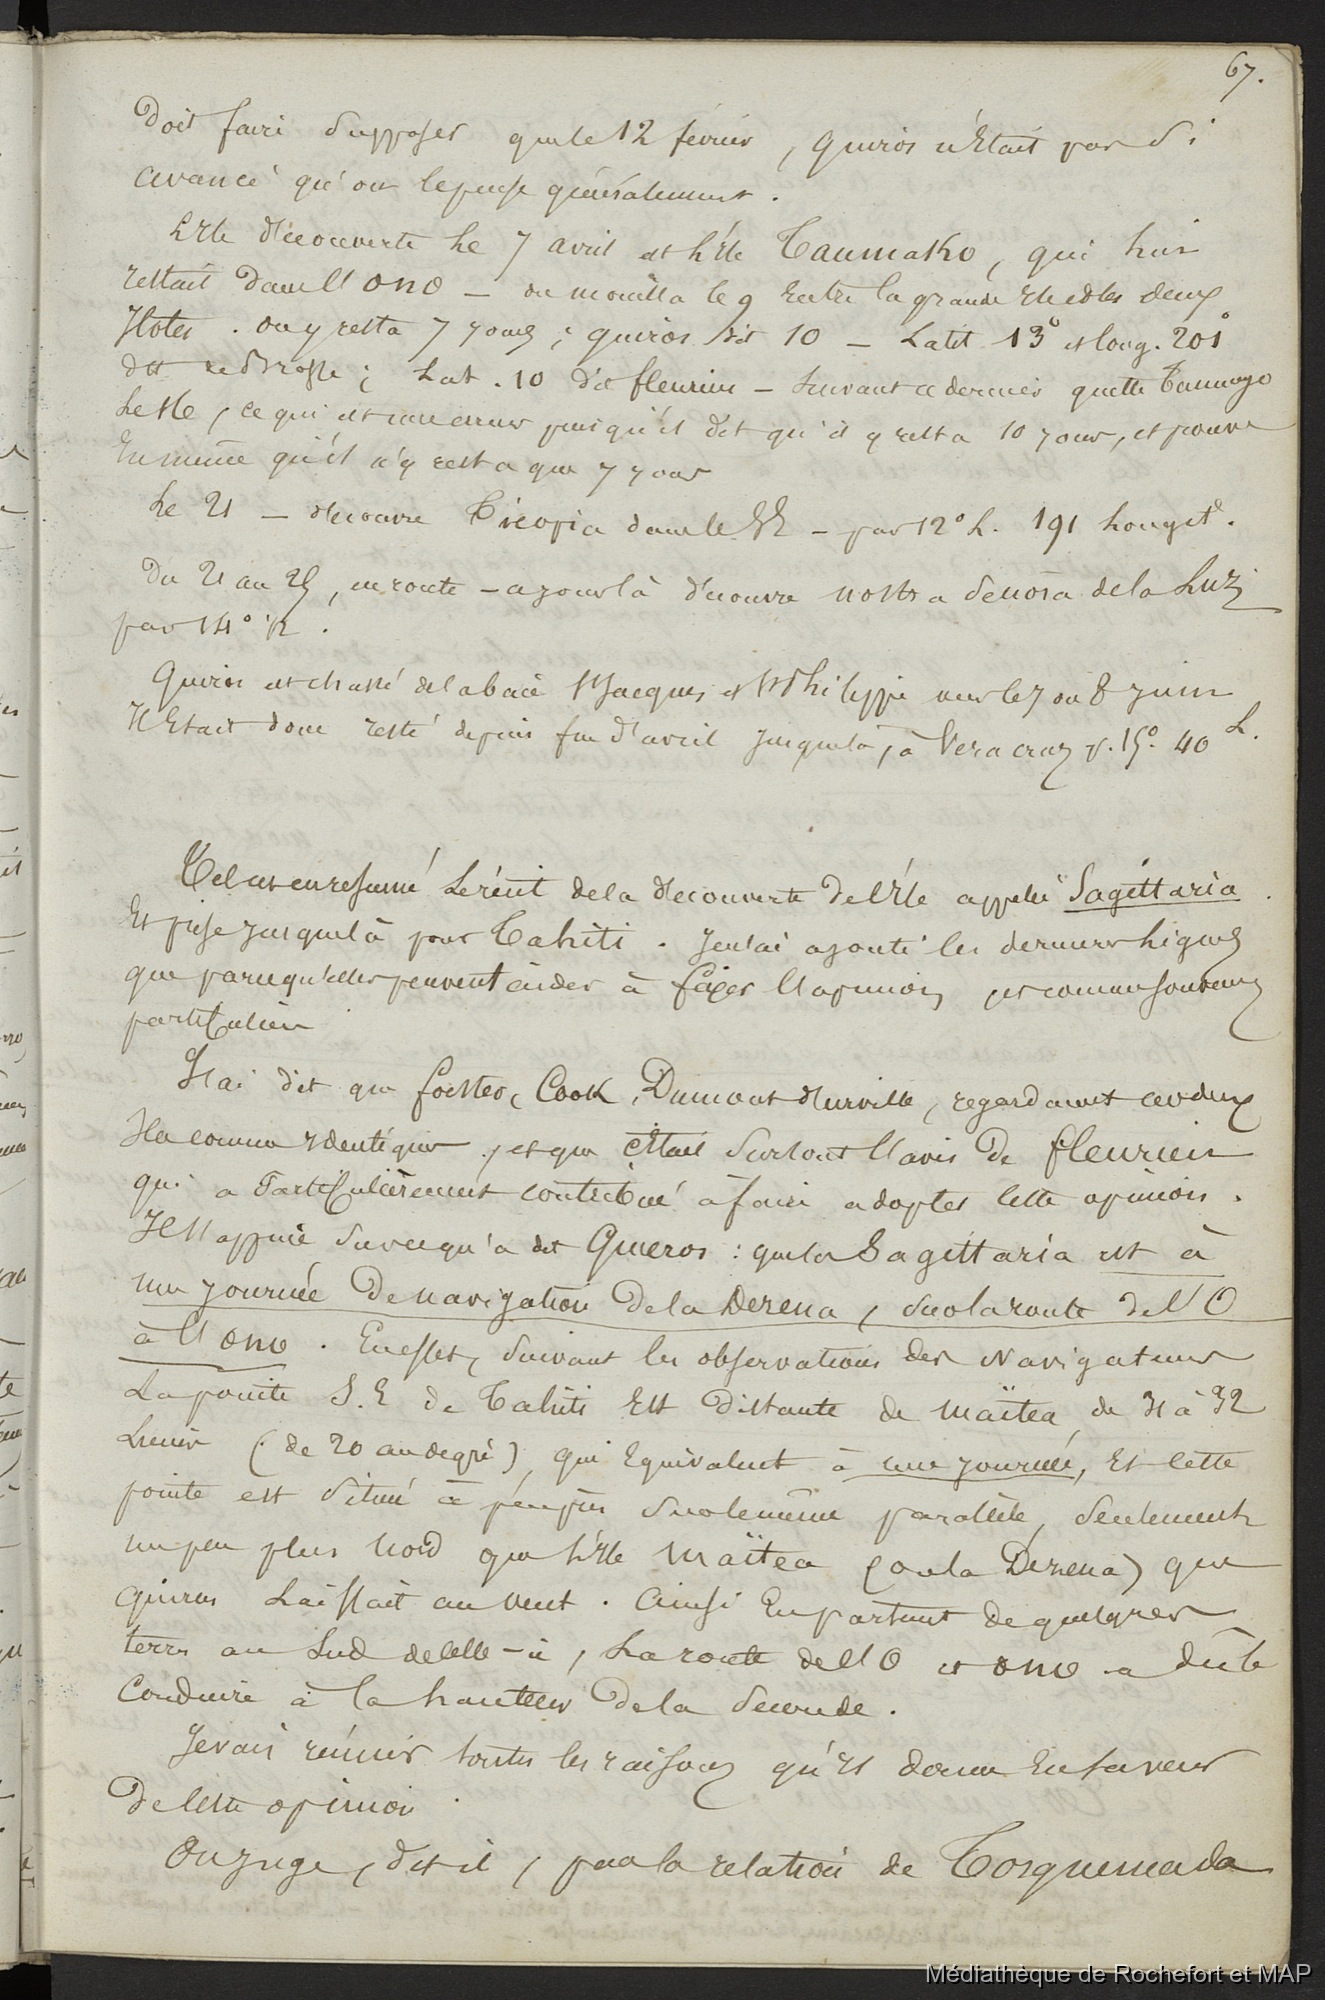 67.
Doit faire supposer que le 12 février, Quiros n'était pas si
avancé qu'on le pense généralement.
L'Ile découverte le 7 avril est l'île Taumako, qui lui
restait dans l'ONO — on mouilla le 9 entre la grande Ile et les deux
Ilotes. on y resta 7 jours; Quiros dit 10 — Latit 13° et long. 201°
dit de Brosse; Lat. 10 dit fleurieu — suivant ce dernier quitte Taumago
le 18, ce qui est une erreur puisqu'il dit qu'il y resta 10 jours, et prouve
lui même qu'il n'y resta que 7 jours
Le 21 — découvre Ticopia dans le SE — par 12° L. 191 Longit.
Du 21 au 25, en route — ce jour là découvre Nostra Senora de la Luz
par 14° 1/2.
Quiros est chassé de la baie St Jacques et St Philippe vers le 7 ou 8 juin
Il était donc resté depuis fin d'avril jusque là, à Vera cruz p. 15°. 40 L.
Tel est en résumé le récit de la découverte de l'île appelée Sagittaria
Et prise jusque là pour Tahiti. Je n'ai ajouté les dernieres lignes
que parce qu'elles peuvent aider à fixer l'opinion, et comme souvenir
particulier
J'ai dit que forster, Cook, Dumont d'urville, regardaient ces deux
Iles comme identiques, et que c'était surtout l'avis de fleurieu
qui a particulièrement contribué à faire adopter cette opinion.
Il s'appuie sur ce qu'a dit Quieros: que la Sagittaria est à
une journée de navigation de la Dezena, sur la route de l'O
à l'ono. En effet, suivant les observations des Navigateurs
La pointe S.E de Tahiti est distante de maïtea de 31 à 32
lieues (de 20 au degré), qui équivalent à une journée, et cette
pointe est située à peu près sur le même parallèle, seulement
un peu plus nord que l'île maïtea (ou la Dezena) que
Quiros laissait au vent. Ainsi en partant de quelques
terres au sud de celle-ci, la route de l'O et ono a dû le
conduire à la hauteur de la seconde.
Je vais réunir toutes les raisons qu'il donne en faveur
de cette opinion.
On juge, dit il, par la relation de Torquemada
Médiathèque de Rochefort et MAP